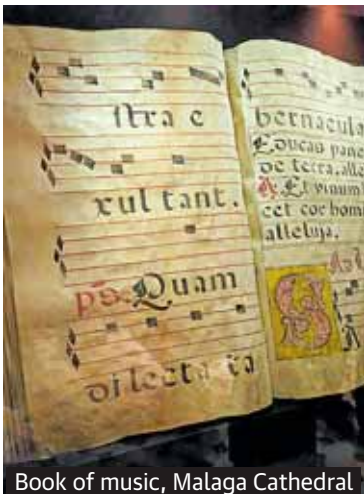 stra e
xul tant.
ps. Quam
dilecta ta
bernacula
Educas pane
de terra, alle
Et vinum
cet cor homi
alleluja.
Book of music, Malaga Cathedral